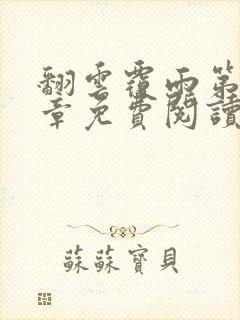 翻雲覆雨第
章免費閱讀
蘇蘇寶貝